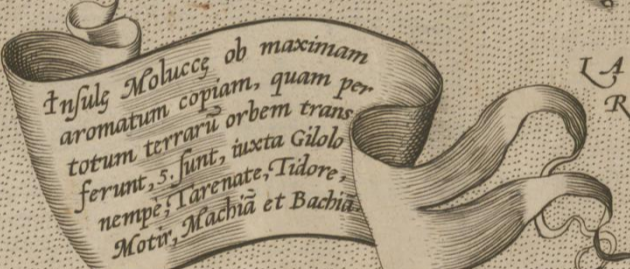 Insulę Moluccę ob maximam
aromatum copiam, quam per
totum terrarū orbem trans
ferunt, 5. sunt, iuxta Gilolo
nempè, Tarenate, Tidore,
Motir, Machiā et Bachiā.
LA
R